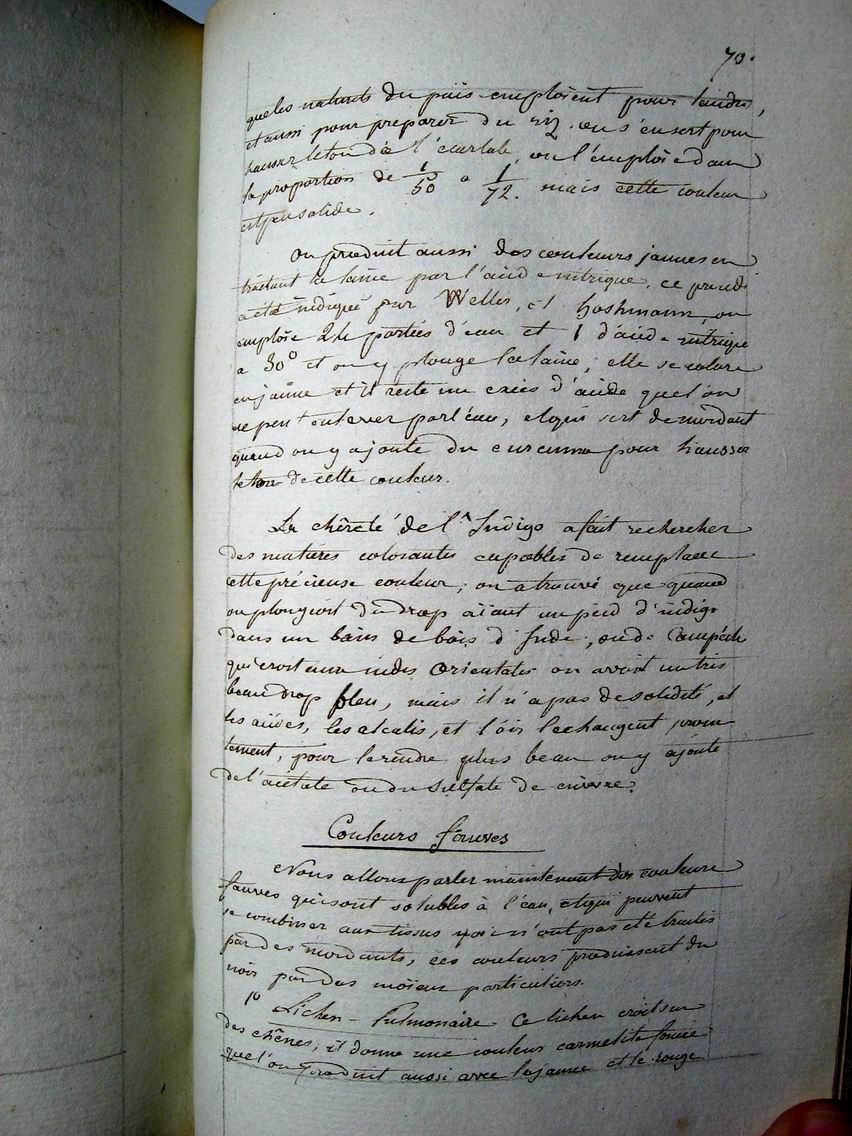 70.
que les naturels du païs emploient pour teindre,
et aussi pour preparer du riz. on s'en sert pour
hausser le ton de l'écarlate, on l'emploie dans
la proportion de 1/50 a 1/72. mais cette couleur
est peu solide.
On produit aussi des couleurs jaunes en
traitant la laine par l'acide nitrique. ce procédé
a été indiqué par Welter, et hoshmann, on
emploie 24 parties d'eau et 1 d'acide nitrique
a 30° et on y plonge la laine; elle se colore
en jaune et il reste un excès d'acide que l'on
ne peut enlever par l'eau, et qui sert de mordant
quand on y ajoute du curcuma pour hausser
le ton de cette couleur.
La chèreté de l'Indigo a fait rechercher
des matieres colorantes capables de remplacer
cette précieuse couleur; on a trouvé que quand
on plongioit du drap aiant un pied d'indigo
dans un bains de bois d'Inde, ou de Campêche
qui croit aux indes Orientales on avoit un très
beau drap bleu, mais il n'a pas de solidité, et
les acides, les alcalis, et l'air le changent prom
tement, pour le rendre plus beau on y ajoute
de l'acétate ou du sulfate de cuivre.
Couleurs fauves
Nous allons parler maintenant des couleurs
fauves qui sont solubles à l'eau, et qui peuvent
se combiner aux tissus qui n'ont pas été traités
par des mordants, ces couleurs produisent du
noir par des moïens particuliers.
1° Lichen-Pulmonaire Ce lichen croit sur
des chênes, il donne une couleur carmelite foncée
que l'on produit aussi avec le jaune et le rouge